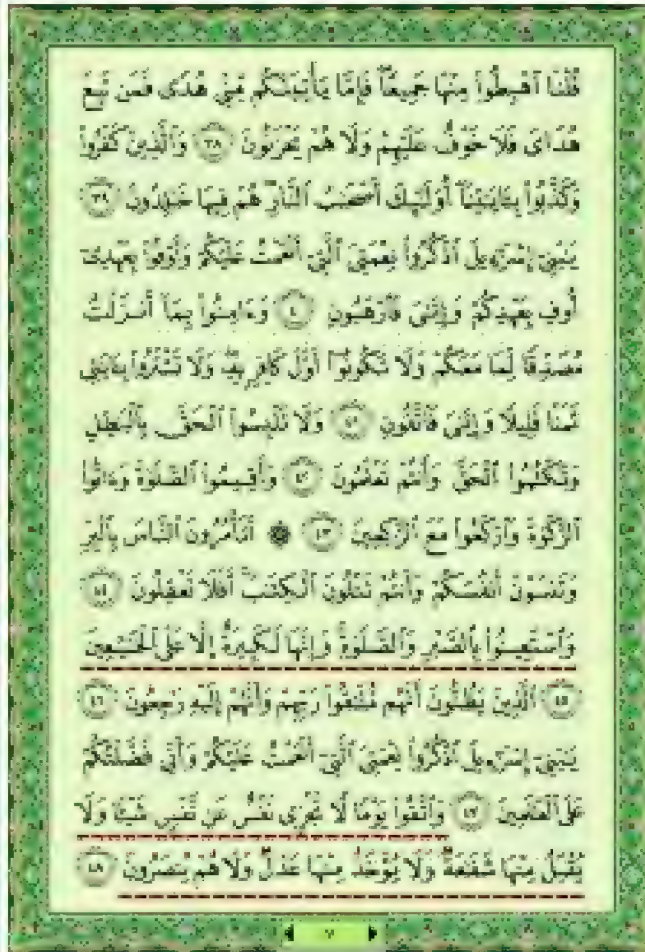 قُلْنَا ٱهْبِطُوا۟ مِنْهَا جَمِيعًا فَإِمَّا يَأْتِيَنَّكُم مِّنِّى هُدًى فَمَن تَبِعَ
هُدَاىَ فَلَا خَوْفٌ عَلَيْهِمْ وَلَا هُمْ يَحْزَنُونَ ٣٨ وَٱلَّذِينَ كَفَرُوا۟
وَكَذَّبُوا۟ بِـَٔايَـٰتِنَآ أُو۟لَـٰٓئِكَ أَصْحَـٰبُ ٱلنَّارِ هُمْ فِيهَا خَـٰلِدُونَ ٣٩
يَـٰبَنِىٓ إِسْرَٰٓءِيلَ ٱذْكُرُوا۟ نِعْمَتِىَ ٱلَّتِىٓ أَنْعَمْتُ عَلَيْكُمْ وَأَوْفُوا۟ بِعَهْدِىٓ
أُوفِ بِعَهْدِكُمْ وَإِيَّـٰىَ فَٱرْهَبُونِ ٤٠ وَءَامِنُوا۟ بِمَآ أَنزَلْتُ
مُصَدِّقًا لِّمَا مَعَكُمْ وَلَا تَكُونُوٓا۟ أَوَّلَ كَافِرٍۭ بِهِۦ وَلَا تَشْتَرُوا۟ بِـَٔايَـٰتِى
ثَمَنًا قَلِيلًا وَإِيَّـٰىَ فَٱتَّقُونِ ٤١ وَلَا تَلْبِسُوا۟ ٱلْحَقَّ بِٱلْبَـٰطِلِ
وَتَكْتُمُوا۟ ٱلْحَقَّ وَأَنتُمْ تَعْلَمُونَ ٤٢ وَأَقِيمُوا۟ ٱلصَّلَوٰةَ وَءَاتُوا۟
ٱلزَّكَوٰةَ وَٱرْكَعُوا۟ مَعَ ٱلرَّٰكِعِينَ ٤٣ ۞ أَتَأْمُرُونَ ٱلنَّاسَ بِٱلْبِرِّ
وَتَنسَوْنَ أَنفُسَكُمْ وَأَنتُمْ تَتْلُونَ ٱلْكِتَـٰبَ أَفَلَا تَعْقِلُونَ ٤٤
وَٱسْتَعِينُوا۟ بِٱلصَّبْرِ وَٱلصَّلَوٰةِ وَإِنَّهَا لَكَبِيرَةٌ إِلَّا عَلَى ٱلْخَـٰشِعِينَ
٤٥ ٱلَّذِينَ يَظُنُّونَ أَنَّهُم مُّلَـٰقُوا۟ رَبِّهِمْ وَأَنَّهُمْ إِلَيْهِ رَٰجِعُونَ ٤٦
يَـٰبَنِىٓ إِسْرَٰٓءِيلَ ٱذْكُرُوا۟ نِعْمَتِىَ ٱلَّتِىٓ أَنْعَمْتُ عَلَيْكُمْ وَأَنِّى فَضَّلْتُكُمْ
عَلَى ٱلْعَـٰلَمِينَ ٤٧ وَٱتَّقُوا۟ يَوْمًا لَّا تَجْزِى نَفْسٌ عَن نَّفْسٍ شَيْـًٔا وَلَا
يُقْبَلُ مِنْهَا شَفَـٰعَةٌ وَلَا يُؤْخَذُ مِنْهَا عَدْلٌ وَلَا هُمْ يُنصَرُونَ ٤٨
٧